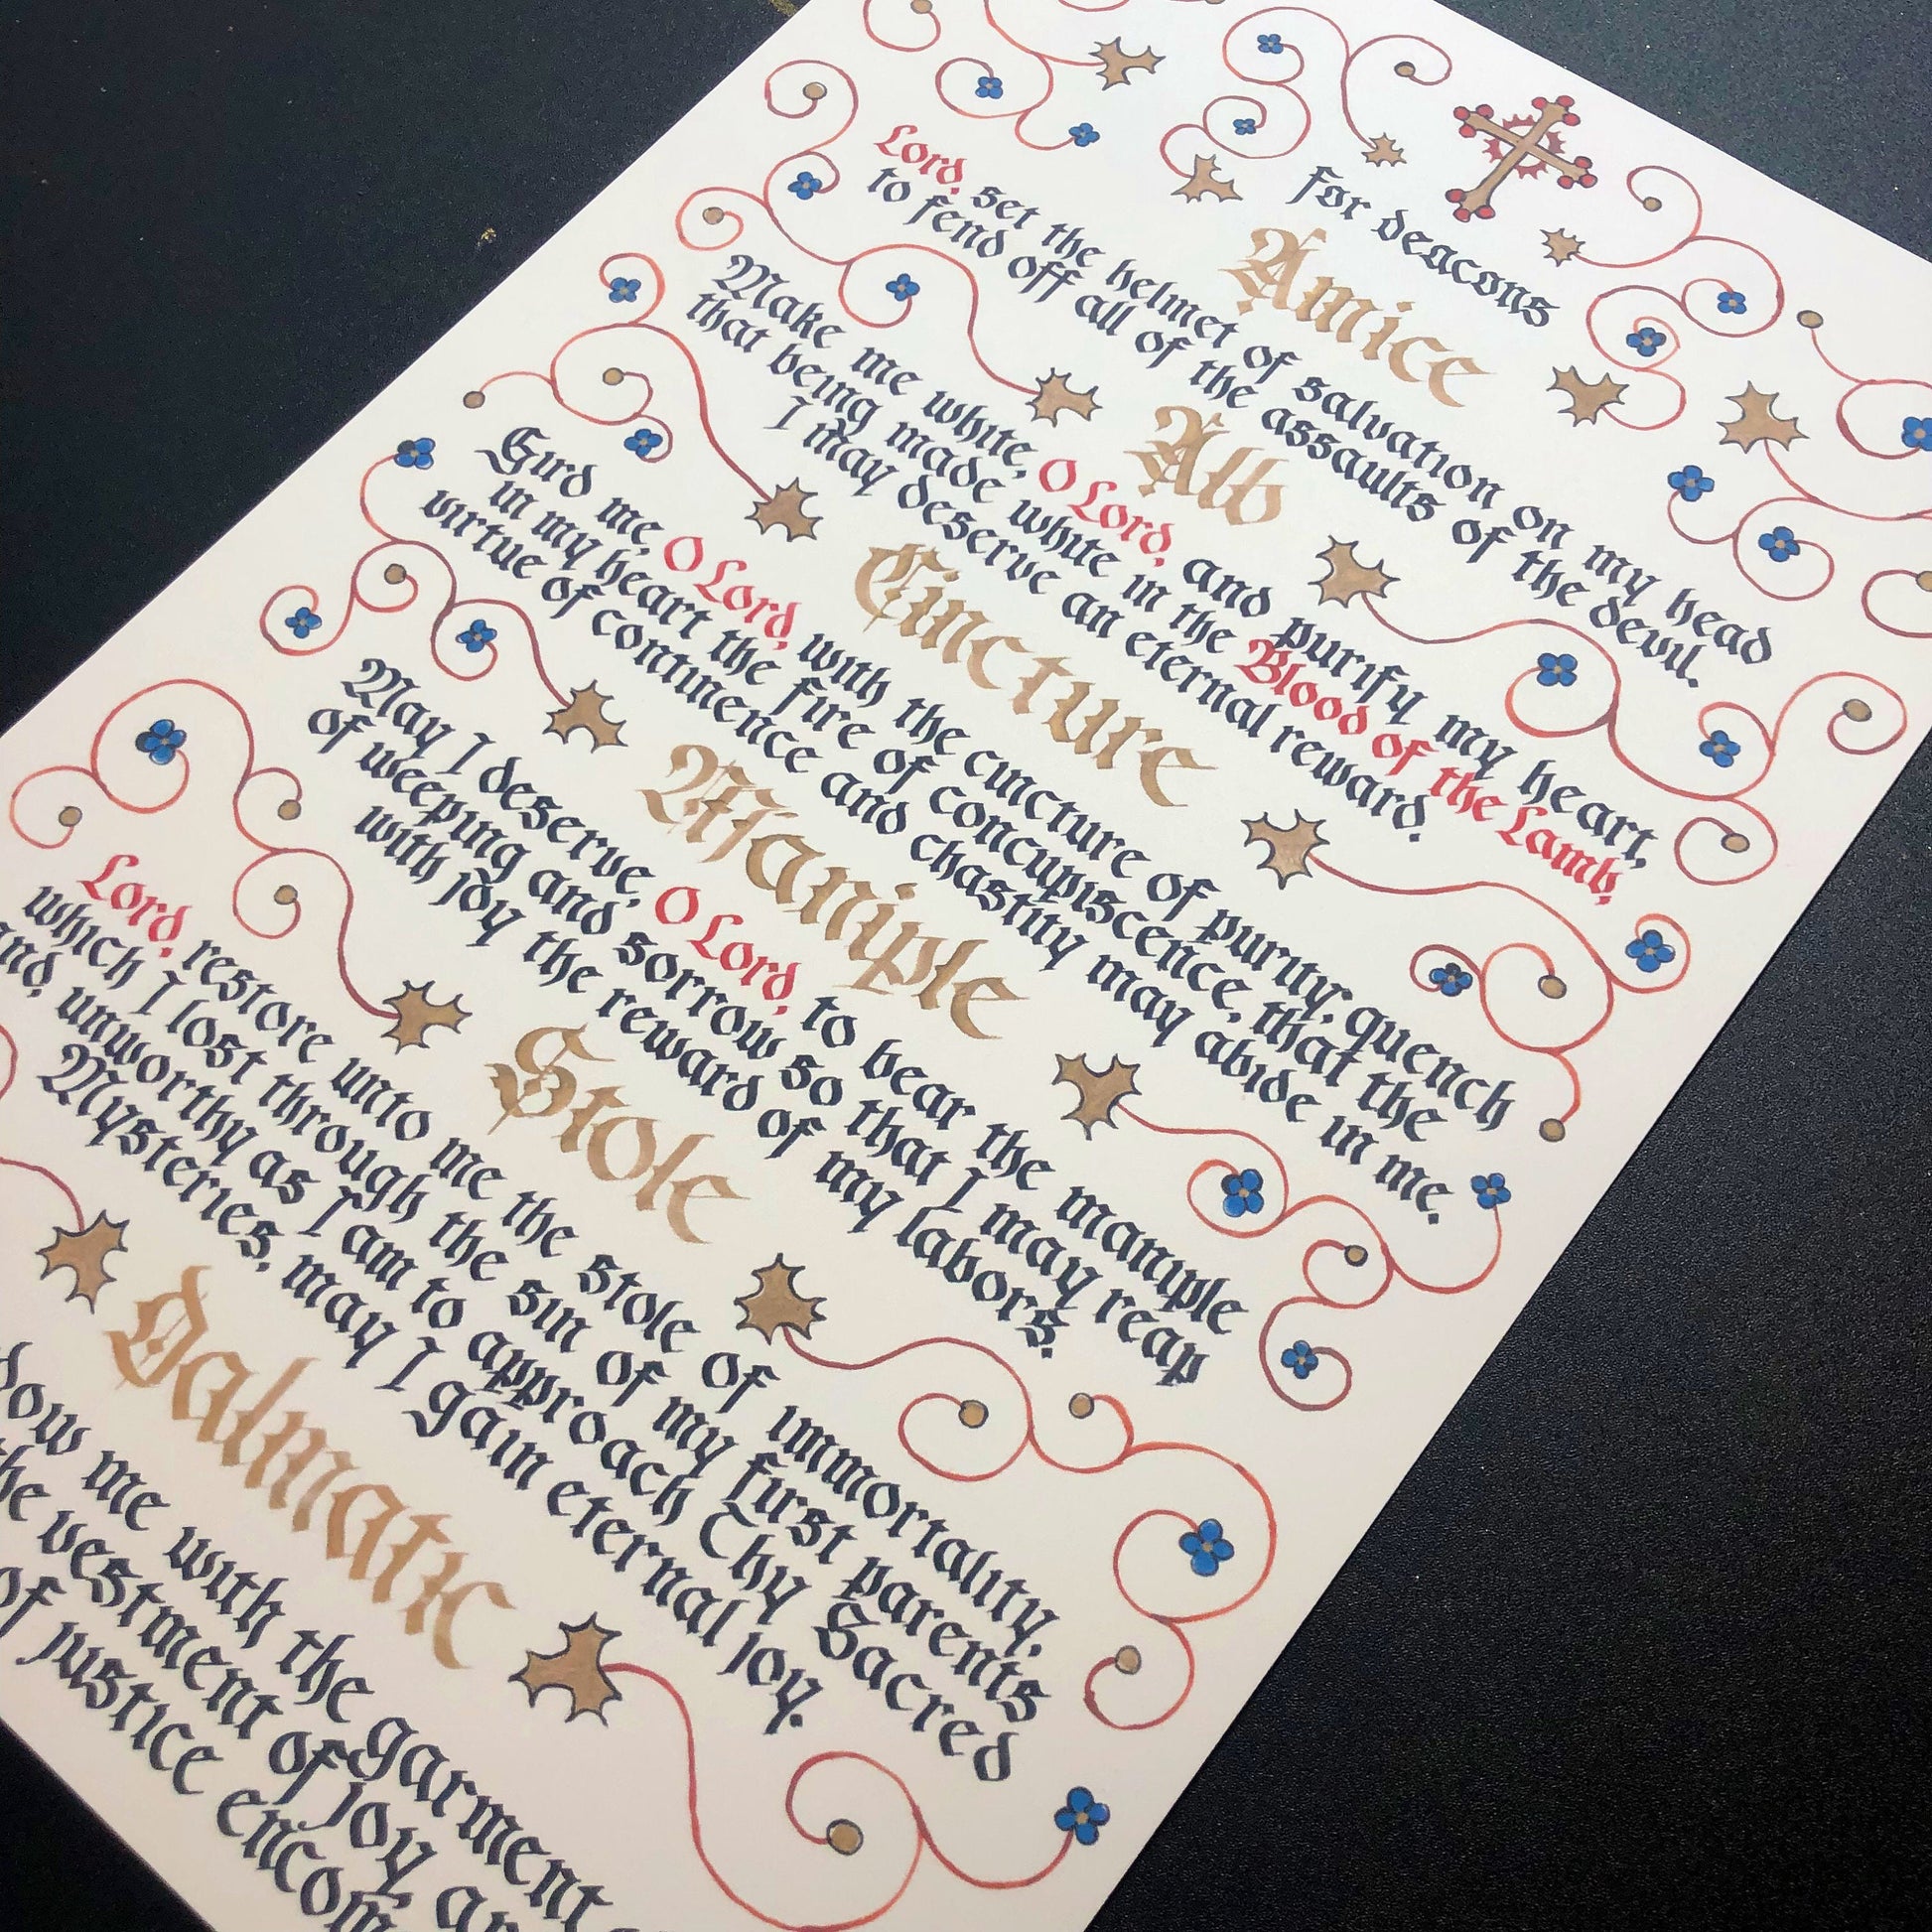 for deacons
Amice
Lord, set the helmet of salvation on my head
to fend off all of the assaults of the devil.
Alb
Make me white, O Lord, and purify my heart,
that being made white in the Blood of the Lamb,
I may deserve an eternal reward.
Cincture
Gird me, O Lord, with the cincture of purity, quench
in my heart the fire of concupiscence, that the
virtue of continence and chastity may abide in me.
Maniple
May I deserve, O Lord, to bear the maniple
of weeping and sorrow so that I may reap
with joy the reward of my labors.
Stole
Lord, restore unto me the stole of immortality,
which I lost through the sin of my first parents
and, unworthy as I am to approach Thy Sacred
Mysteries, may I gain eternal joy.
Dalmatic
me with the garment
vestment of joy
of justice